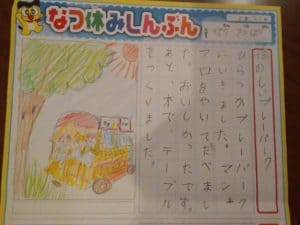 なつ休みしんぶん
のしいプレーパーク
プレーパーク
にいきました。マシュ
マロをやいてたべまし
た。おいしかったです。
あと、木で、テーブル
をつくりました。